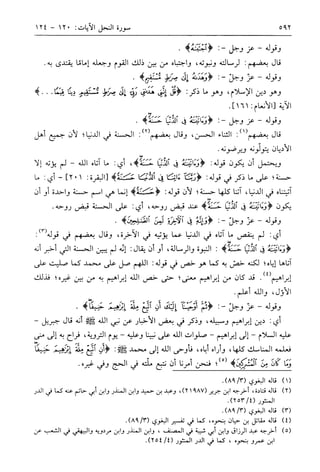 ٥٩٢ سورة النحل الآيات: ١٢٠ - ١٢٤
وقوله - عز وجل -: ﴿ٱجْتَبَىٰهُ﴾.
قال بعضهم: لرسالته ونبوته، واجتباه من بين ذلك القوم وجعله إمامًا يقتدى به.
وقوله - عز وجل -: ﴿وَهَدَىٰهُ إِلَىٰ صِرَٰطٍ مُّسْتَقِيمٍ﴾.
وهو دين الإسلام، وهو ما ذكر: ﴿قُلْ إِنَّنِى هَدَىٰنِى رَبِّىٓ إِلَىٰ صِرَٰطٍ مُّسْتَقِيمٍ دِينًا قِيَمًا...﴾
الآية [الأنعام: ١٦١].
وقوله - عز وجل -: ﴿وَءَاتَيْنَٰهُ فِى ٱلدُّنْيَا حَسَنَةً﴾.
قال بعضهم(١): الثناء الحسن، وقال بعضهم(٢): الحسنة في الدنيا؛ لأن جميع أهل
الأديان يتولونه ويرضونه.
ويحتمل أن يكون قوله: ﴿وَءَاتَيْنَٰهُ فِى ٱلدُّنْيَا حَسَنَةً﴾، أي: ما آتاه الله - لم يؤته إلا
حسنة؛ على ما ذكر في قوله: ﴿رَبَّنَآ ءَاتِنَا فِى ٱلدُّنْيَا حَسَنَةً﴾ [البقرة: ٢٠١] - أي: ما
آتيتناه في الدنيا، آتنا كلها حسنة؛ لأن قوله: ﴿حَسَنَةً﴾ إنما هي اسم حسنة واحدة أو أن
يكون ﴿وَءَاتَيْنَٰهُ فِى ٱلدُّنْيَا حَسَنَةً﴾ عند قبض روحه، أي: على الحسنة قبض روحه.
وقوله - عز وجل -: ﴿وَإِنَّهُۥ فِى ٱلْأَخِرَةِ لَمِنَ ٱلصَّٰلِحِينَ﴾.
أي: لم ينقص ما آتاه في الدنيا عما يؤتيه في الآخرة، وقال بعضهم في قوله(٣):
﴿وَءَاتَيْنَٰهُ فِى ٱلدُّنْيَا حَسَنَةً﴾: النبوة والرسالة، أو أن يقال: إنه لم يبين الحسنة التي أخبر أنه
آتاها إياه؛ لكنه خص به كما هو خص في قوله: اللهم صل على محمد كما صليت على
إبراهيم(٤). قد كان من إبراهيم معنى؛ حتى خص الله إبراهيم به من بين غيره؛ فذلك
الأول، والله أعلم.
وقوله - عز وجل -: ﴿ثُمَّ أَوْحَيْنَآ إِلَيْكَ أَنِ ٱتَّبِعْ مِلَّةَ إِبْرَٰهِيمَ حَنِيفًا﴾.
أي: دين إبراهيم وسبيله، وذكر في بعض الأخبار عن نبي الله ﷺ أنه قال جبريل -
عليه السلام - إلى إبراهيم - صلوات الله على نبينا وعليه - يوم التروية، فراح به إلى منى
فعلمه المناسك كلها، وأراه أياه، فأوحى الله إلى محمد ﷺ: ﴿أَنِ ٱتَّبِعْ مِلَّةَ إِبْرَٰهِيمَ حَنِيفًا
وَمَا كَانَ مِنَ ٱلْمُشْرِكِينَ﴾(٥)؛ فنحن أمرنا أن نتبع ملته في الحج وفي غيره.
(١) قاله البغوي (٨٩/٣).
(٢) قاله قتادة، أخرجه ابن جرير (٢١٩٨٧)، وعبد بن حميد وابن المنذر وابن أبي حاتم عنه كما في الدر
المنثور (٢٥٣/٤).
(٣) قاله البغوي (٨٩/٣).
(٤) قاله مقاتل بن حيان بنحوه، كما في تفسير البغوي (٨٩/٣).
(٥) أخرجه عبد الرزاق وابن أبي شيبة في المصنف، وابن المنذر وابن مردويه والبيهقي في الشعب عن
ابن عمرو بنحوه، كما في الدر المنثور (٢٥٤/٤).